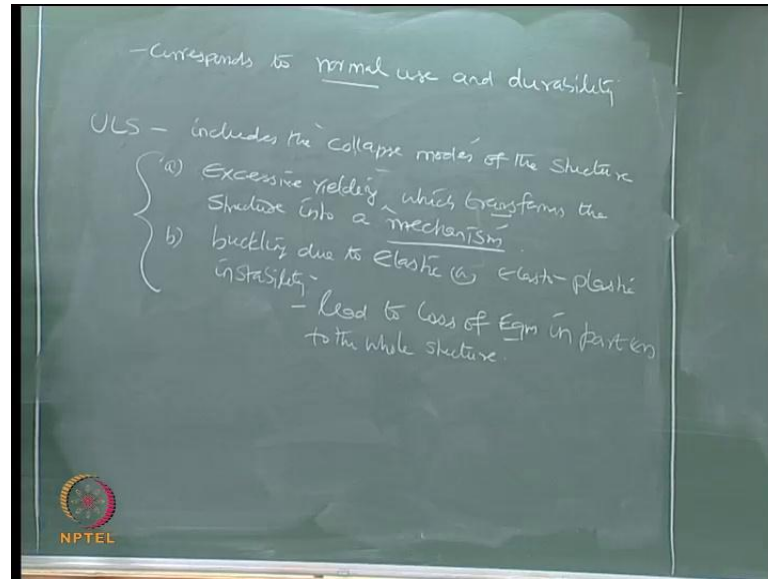 - Corresponds to normal use and durability
ULS - includes the collapse modes of the structure
a) Excessive yielding, which transforms the
structure into a mechanism
b) buckling due to elastic (or) elasto-plastic
instability
- lead to loss of Eqm in part (or)
to the whole structure.
NPTEL